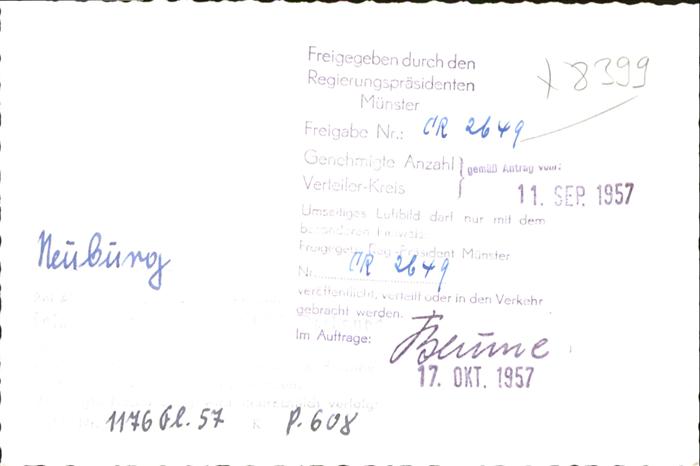 Freigegeben durch den
Regierungspräsidenten
Münster
x 8399
Freigabe Nr.: CR 2649
Genehmigte Anzahl } gemäß Antrag vom:
Verteiler-Kreis
11. SEP. 1957
Umseitiges Luftbild darf nur mit dem
besonderen Hinweis:
Freigegeb. Reg.-Präsident Münster
Nr. CR 2649
veröffentlicht, verteilt oder in den Verkehr
gebracht werden.
Im Auftrage:
17. OKT. 1957
Neuburg
verfolgt
1176 Gl. 57 K P. 608